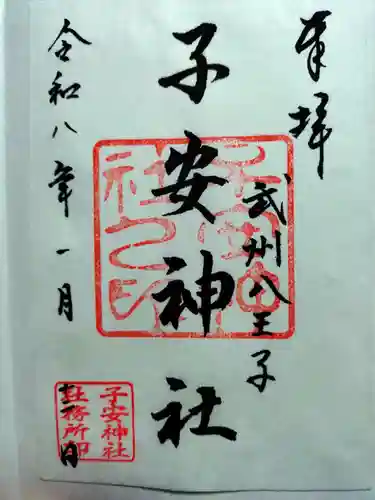 奉拝
武州八王子
子安神社
令和八年一月
子安神社
社務所印